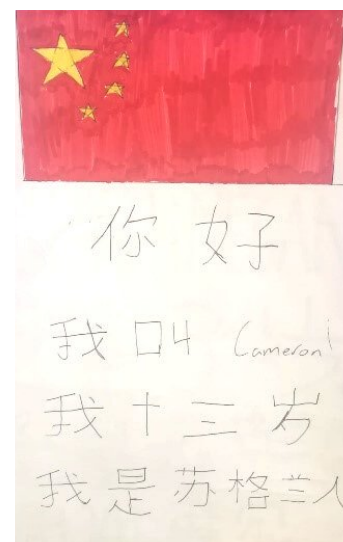 你好
我叫 Cameron
我十三岁
我是苏格兰人